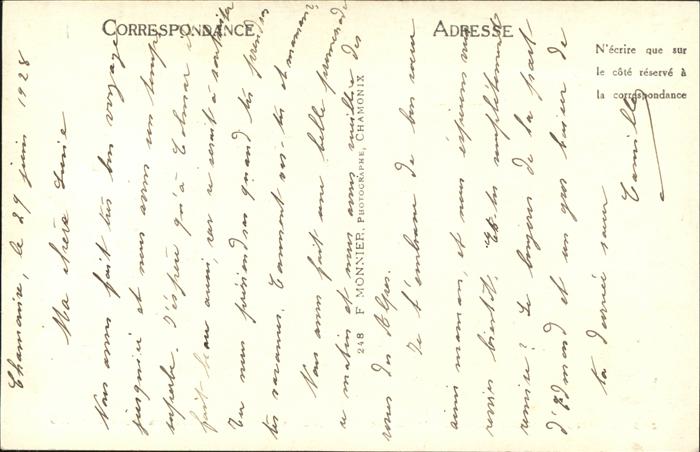 CORRESPONDANCE
ADRESSE
N'écrire que sur
le côté réservé à
la correspondance
248 F MONNIER, PHOTOGRAPHE, CHAMONIX
Chamonix, le 29 juin 1928
Ma chère
Nous avons fait très bon voyage
jusqu'ici et nous avons un temps
superbe. J'espère qu'à Colmar il
fait beau aussi, car ce serait à souhaiter
Tu nous préviendras quand tu prendras
tes vacances. Comment vas-tu et maman?
Nous avons fait une belle promenade
ce matin et nous avons cueilli des
roses des Alpes.
Je t'embrasse de bon cœur
ainsi maman, et nous espérons vous
revoir bientôt. Es-tu complètement
remise? Le bonjour de la part
d'Edmond et un gros baiser de
ta sœur
Camille